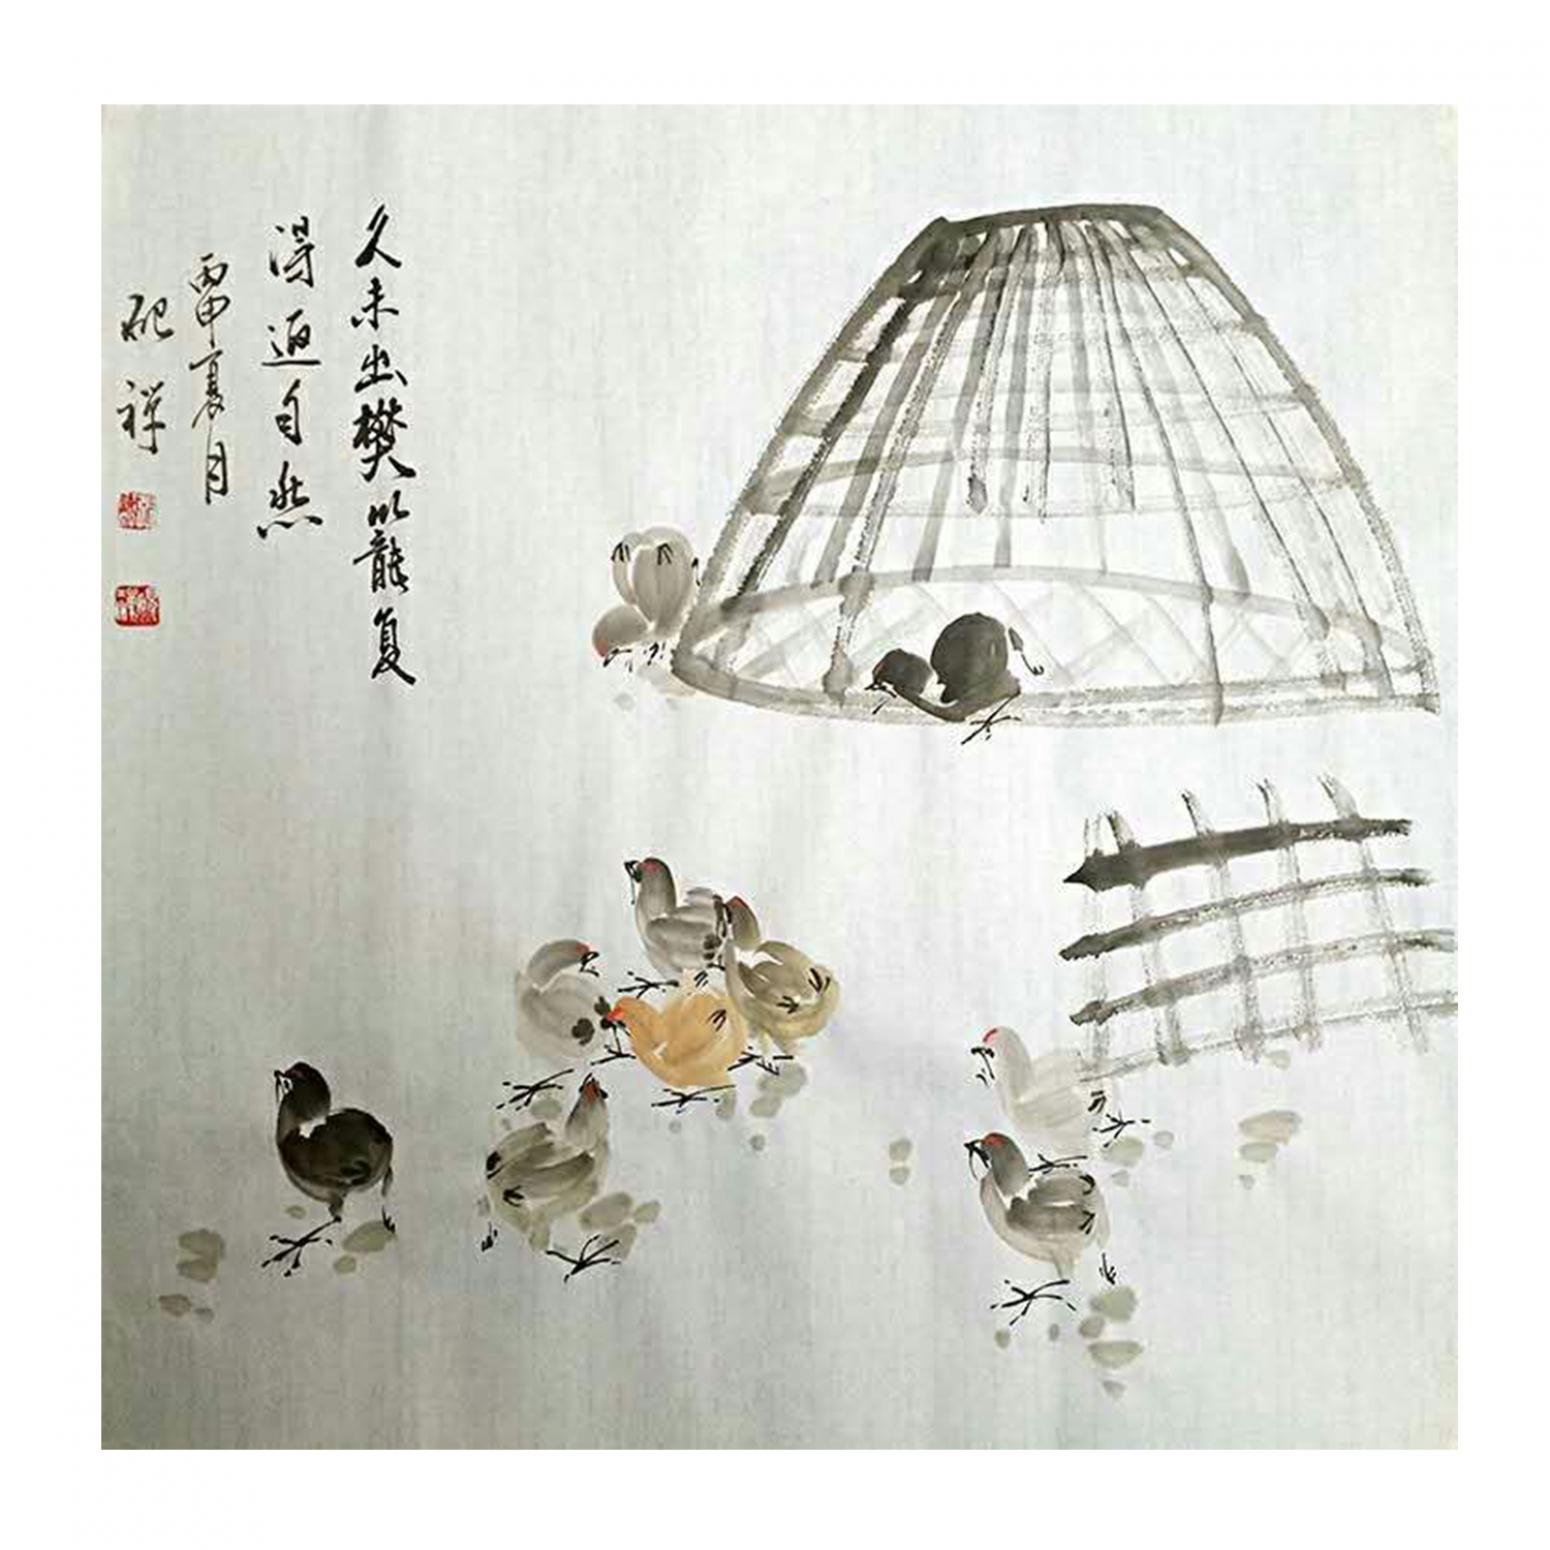 久未出樊籠复
得返自然
丙申夏月
祥